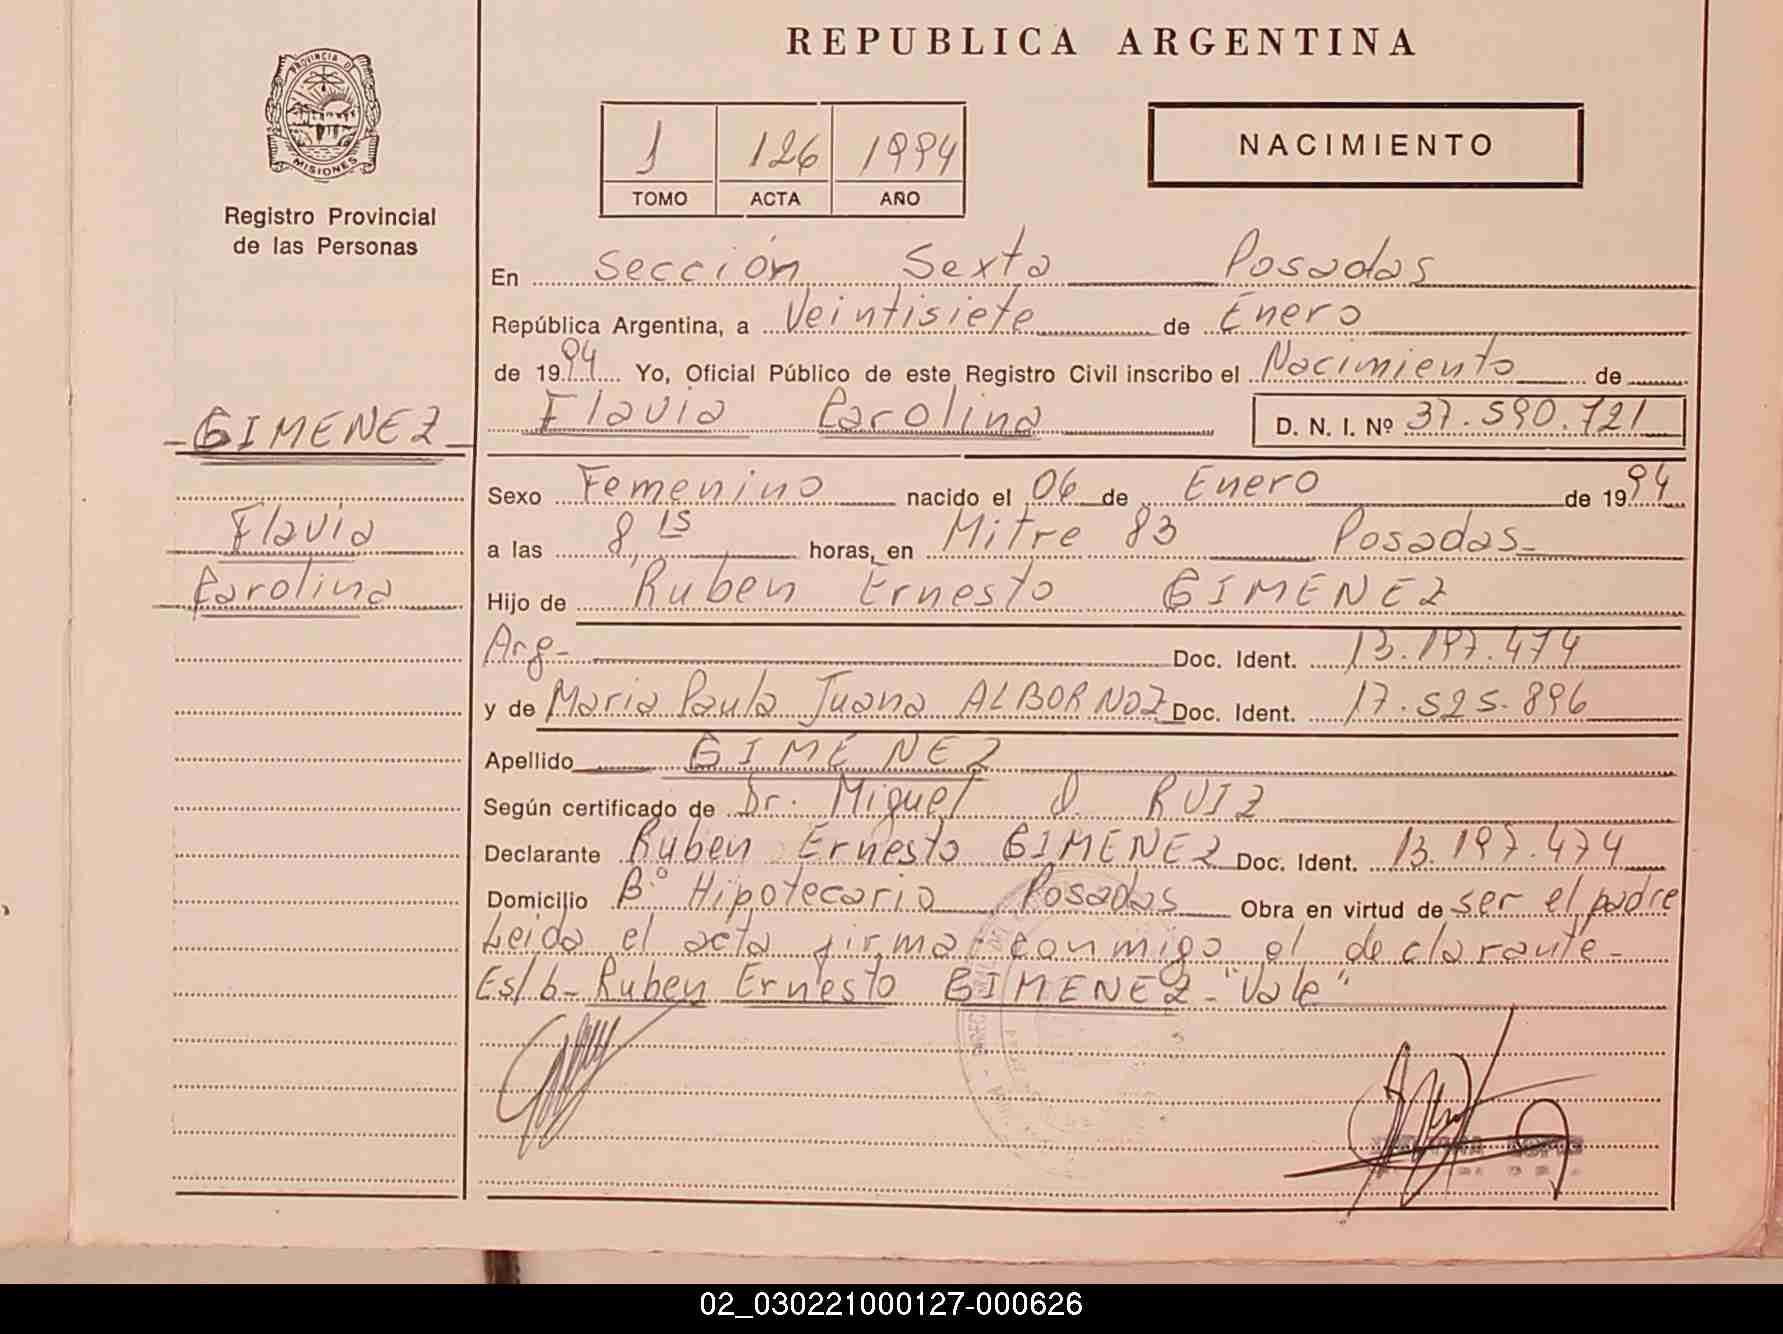 REPUBLICA ARGENTINA
PROVINCIA DE
MISIONES
Registro Provincial
de las Personas
1 126 1994
TOMO ACTA AÑO
NACIMIENTO
En Sección Sexta Posadas
República Argentina, a Veintisiete de Enero
de 1994 Yo, Oficial Público de este Registro Civil inscribo el Nacimiento de
Flavia Carolina D. N. I. Nº 37.590.721
GIMENEZ
Flavia
Carolina
Sexo Femenino nacido el 06 de Enero de 1994
a las 8,15 horas, en Mitre 83 Posadas-
Hijo de Ruben Ernesto GIMENEZ
Arg- Doc. Ident. 13.197.474
y de Maria Paula Juana ALBORNOZ Doc. Ident. 17.525.896
Apellido GIMENEZ
Según certificado de Dr. Miguel O. RUIZ
Declarante Ruben Ernesto GIMENEZ Doc. Ident. 13.197.474
Domicilio Bº Hipotecario Posadas Obra en virtud de ser el padre
Leida el acta firma conmigo el declarante-
Es/b- Ruben Ernesto GIMENEZ- "Vale"
02_030221000127-000626